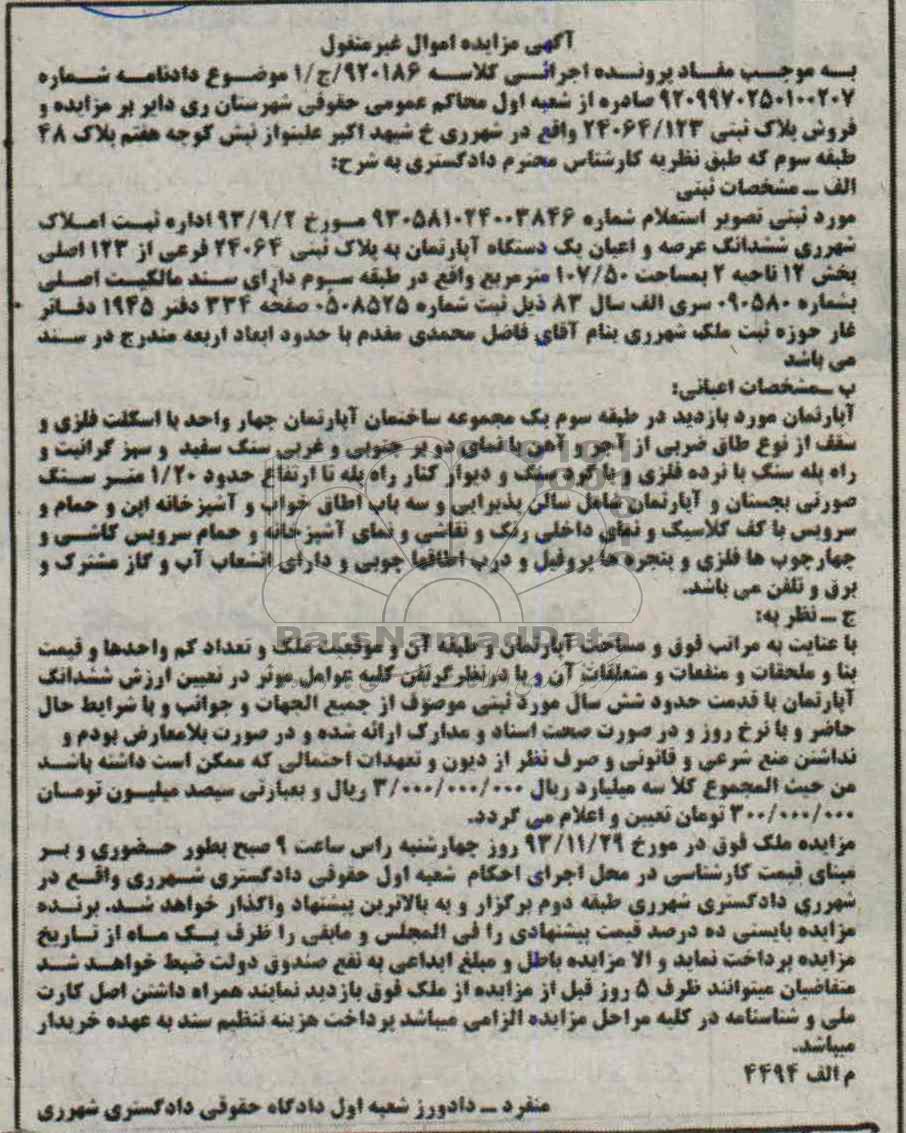 آگهی مزایده اموال غیرمنقول
به موجب مفاد پرونده اجرائی کلاسه ۹۲۰۱۸۶/ج/۱ موضوع دادنامه شماره
۹۲۰۹۹۷۰۲۵۰۱۰۰۲۰۷ صادره از شعبه اول محاکم عمومی حقوقی شهرستان ری دایر بر مزایده و
فروش پلاک ثبتی ۲۴۰۶۴/۱۲۳ واقع در شهرری خ شهید اکبر علینواز نبش کوچه هفتم پلاک ۴۸
طبقه سوم که طبق نظریه کارشناس محترم دادگستری به شرح:
الف ــ مشخصات ثبتی
مورد ثبتی تصویر استعلام شماره ۹۳۰۵۸۱۰۲۴۰۰۳۸۴۶ مورخ ۹۳/۹/۲ اداره ثبت املاک
شهرری ششدانگ عرصه و اعیان یک دستگاه آپارتمان به پلاک ثبتی ۲۴۰۶۴ فرعی از ۱۲۳ اصلی
بخش ۱۲ ناحیه ۲ بمساحت ۱۰۷/۵۰ مترمربع واقع در طبقه سوم دارای سند مالکیت اصلی
بشماره ۰۹۰۵۸۰ سری الف سال ۸۳ ذیل ثبت شماره ۰۵۰۸۵۲۵ صفحه ۳۳۴ دفتر ۱۹۴۵ دفاتر
غار حوزه ثبت ملک شهرری بنام آقای فاضل محمدی مقدم با حدود ابعاد اربعه مندرج در سند
می باشد
ب ــمشخصات اعیانی:
آپارتمان مورد بازدید در طبقه سوم یک مجموعه ساختمان آپارتمان چهار واحد با اسکلت فلزی و
سقف از نوع طاق ضربی از آجر و آهن با نمای دو بر جنوبی و غربی سنک سفید و سبز گرانیت و
راه پله سنگ با نرده فلزی و پا گرد سنگ و دیوار کنار راه پله تا ارتفاع حدود ۱/۲۰ متر سنگ
صورتی بجستان و آپارتمان شامل سالن پذیرایی و سه باب اطاق خواب و آشپزخانه اپن و حمام و
سرویس با کف کلاسیک و نمای داخلی رنگ و نقاشی و نمای آشپزخانه و حمام سرویس کاشی و
چهارچوب ها فلزی و پنجره ها پروفیل و درب اطاقها چوبی و دارای انشعاب آب و گاز مشترک و
برق و تلفن می باشد.
ج ــ نظر یه:
با عنایت به مراتب فوق و مساحت آپارتمان و طبقه آن و موقعیت ملک و تعداد کم واحدها و قیمت
بنا و ملحقات و منفعات و متعلقات آن و با درنظرگرفتن کلیه عوامل موثر در تعیین ارزش ششدانگ
آپارتمان با قدمت حدود شش سال مورد ثبتی موصوف از جمیع الجهات و جوانب و با شرایط حال
حاضر و با نرخ روز و در صورت صحت اسناد و مدارک ارائه شده و در صورت بلامعارض بودم و
نداشتن منع شرعی و قانونی و صرف نظر از دیون و تعهدات احتمالی که ممکن است داشته باشد
من حیث المجموع کلا سه میلیارد ریال ۳/۰۰۰/۰۰۰/۰۰۰ ریال و بعبارتی سیصد میلیون تومان
۳۰۰/۰۰۰/۰۰۰ تومان تعیین و اعلام می گردد.
مزایده ملک فوق در مورخ ۹۳/۱۱/۲۹ روز چهارشنبه راس ساعت ۹ صبح بطور حضوری و بر
مبنای قیمت کارشناسی در محل اجرای احکام شعبه اول حقوقی دادگستری شهرری واقع در
شهرری دادگستری شهرری طبقه دوم برگزار و به بالاترین پیشنهاد واگذار خواهد شد. برنده
مزایده بایستی ده درصد قیمت پیشنهادی را فی المجلس و مابقی را ظرف یک ماه از تاریخ
مزایده پرداخت نماید و الا مزایده باطل و مبلغ ابداعی به نفع صندوق دولت ضبط خواهد شد
متقاضیان میتوانند ظرف ۵ روز قبل از مزایده از ملک فوق بازدید نمایند همراه داشتن اصل کارت
ملی و شناسنامه در کلیه مراحل مزایده الزامی میباشد پرداخت هزینه تنظیم سند به عهده خریدار
میباشد.
م الف ۴۴۹۴
منفرد ــ دادورز شعبه اول دادگاه حقوقی دادگستری شهرری
ParsNamadData